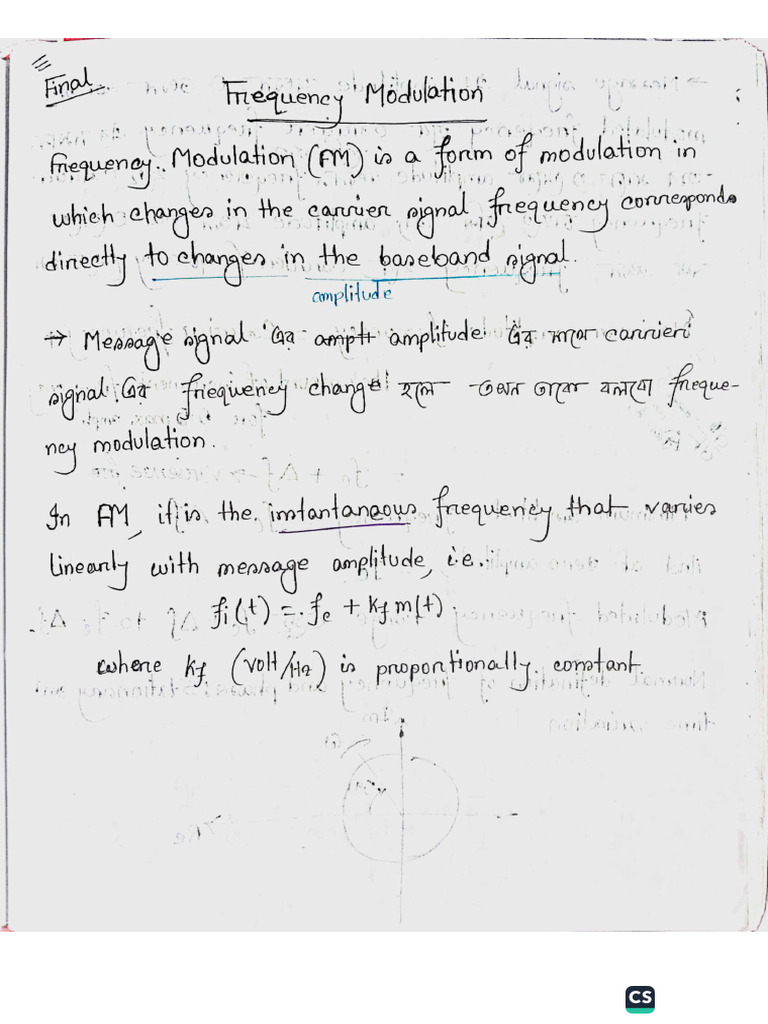 Final
Frequency Modulation
Frequency Modulation (FM) is a form of modulation in
which changes in the carrier signal frequency corresponds
directly to changes in the baseband signal.
amplitude
→ Message signal এর amplitude এর সাথে carrier
signal এর frequency change হলে তখন তাকে বলবো freque-
ncy modulation.
In FM, it is the instantaneous frequency that varies
linearly with message amplitude, i.e.
fi(t) = fc + kf m(t).
where kf (volt/Hz) is proportionally constant.
CS